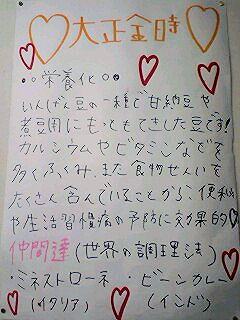 大正金時
栄養化
いんげん豆の一種で甘納豆や
煮豆用にもっともてきした豆です!
カルシウムやビタミンなどを
多くふくみ、また食物せんいを
たくさん含んでいることから、便秘
や生活習慣病の予防に効果的
仲間達(世界の調理法)
・ミネストローネ ・ビーンカレー
(イタリア) (インド)